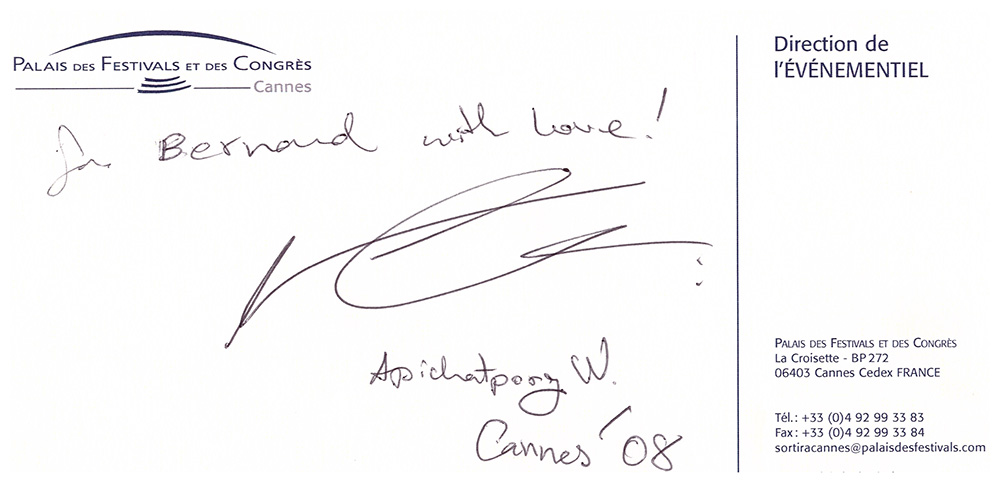 PALAIS DES FESTIVALS ET DES CONGRÈS
Cannes
for Bernard with Love!
Apichatpong W.
Cannes '08
Direction de
l'ÉVÉNEMENTIEL
PALAIS DES FESTIVALS ET DES CONGRÈS
La Croisette - BP 272
06403 Cannes Cedex FRANCE
Tél.: +33 (0)4 92 99 33 83
Fax: +33 (0)4 92 99 33 84
sortiracannes@palaisdesfestivals.com